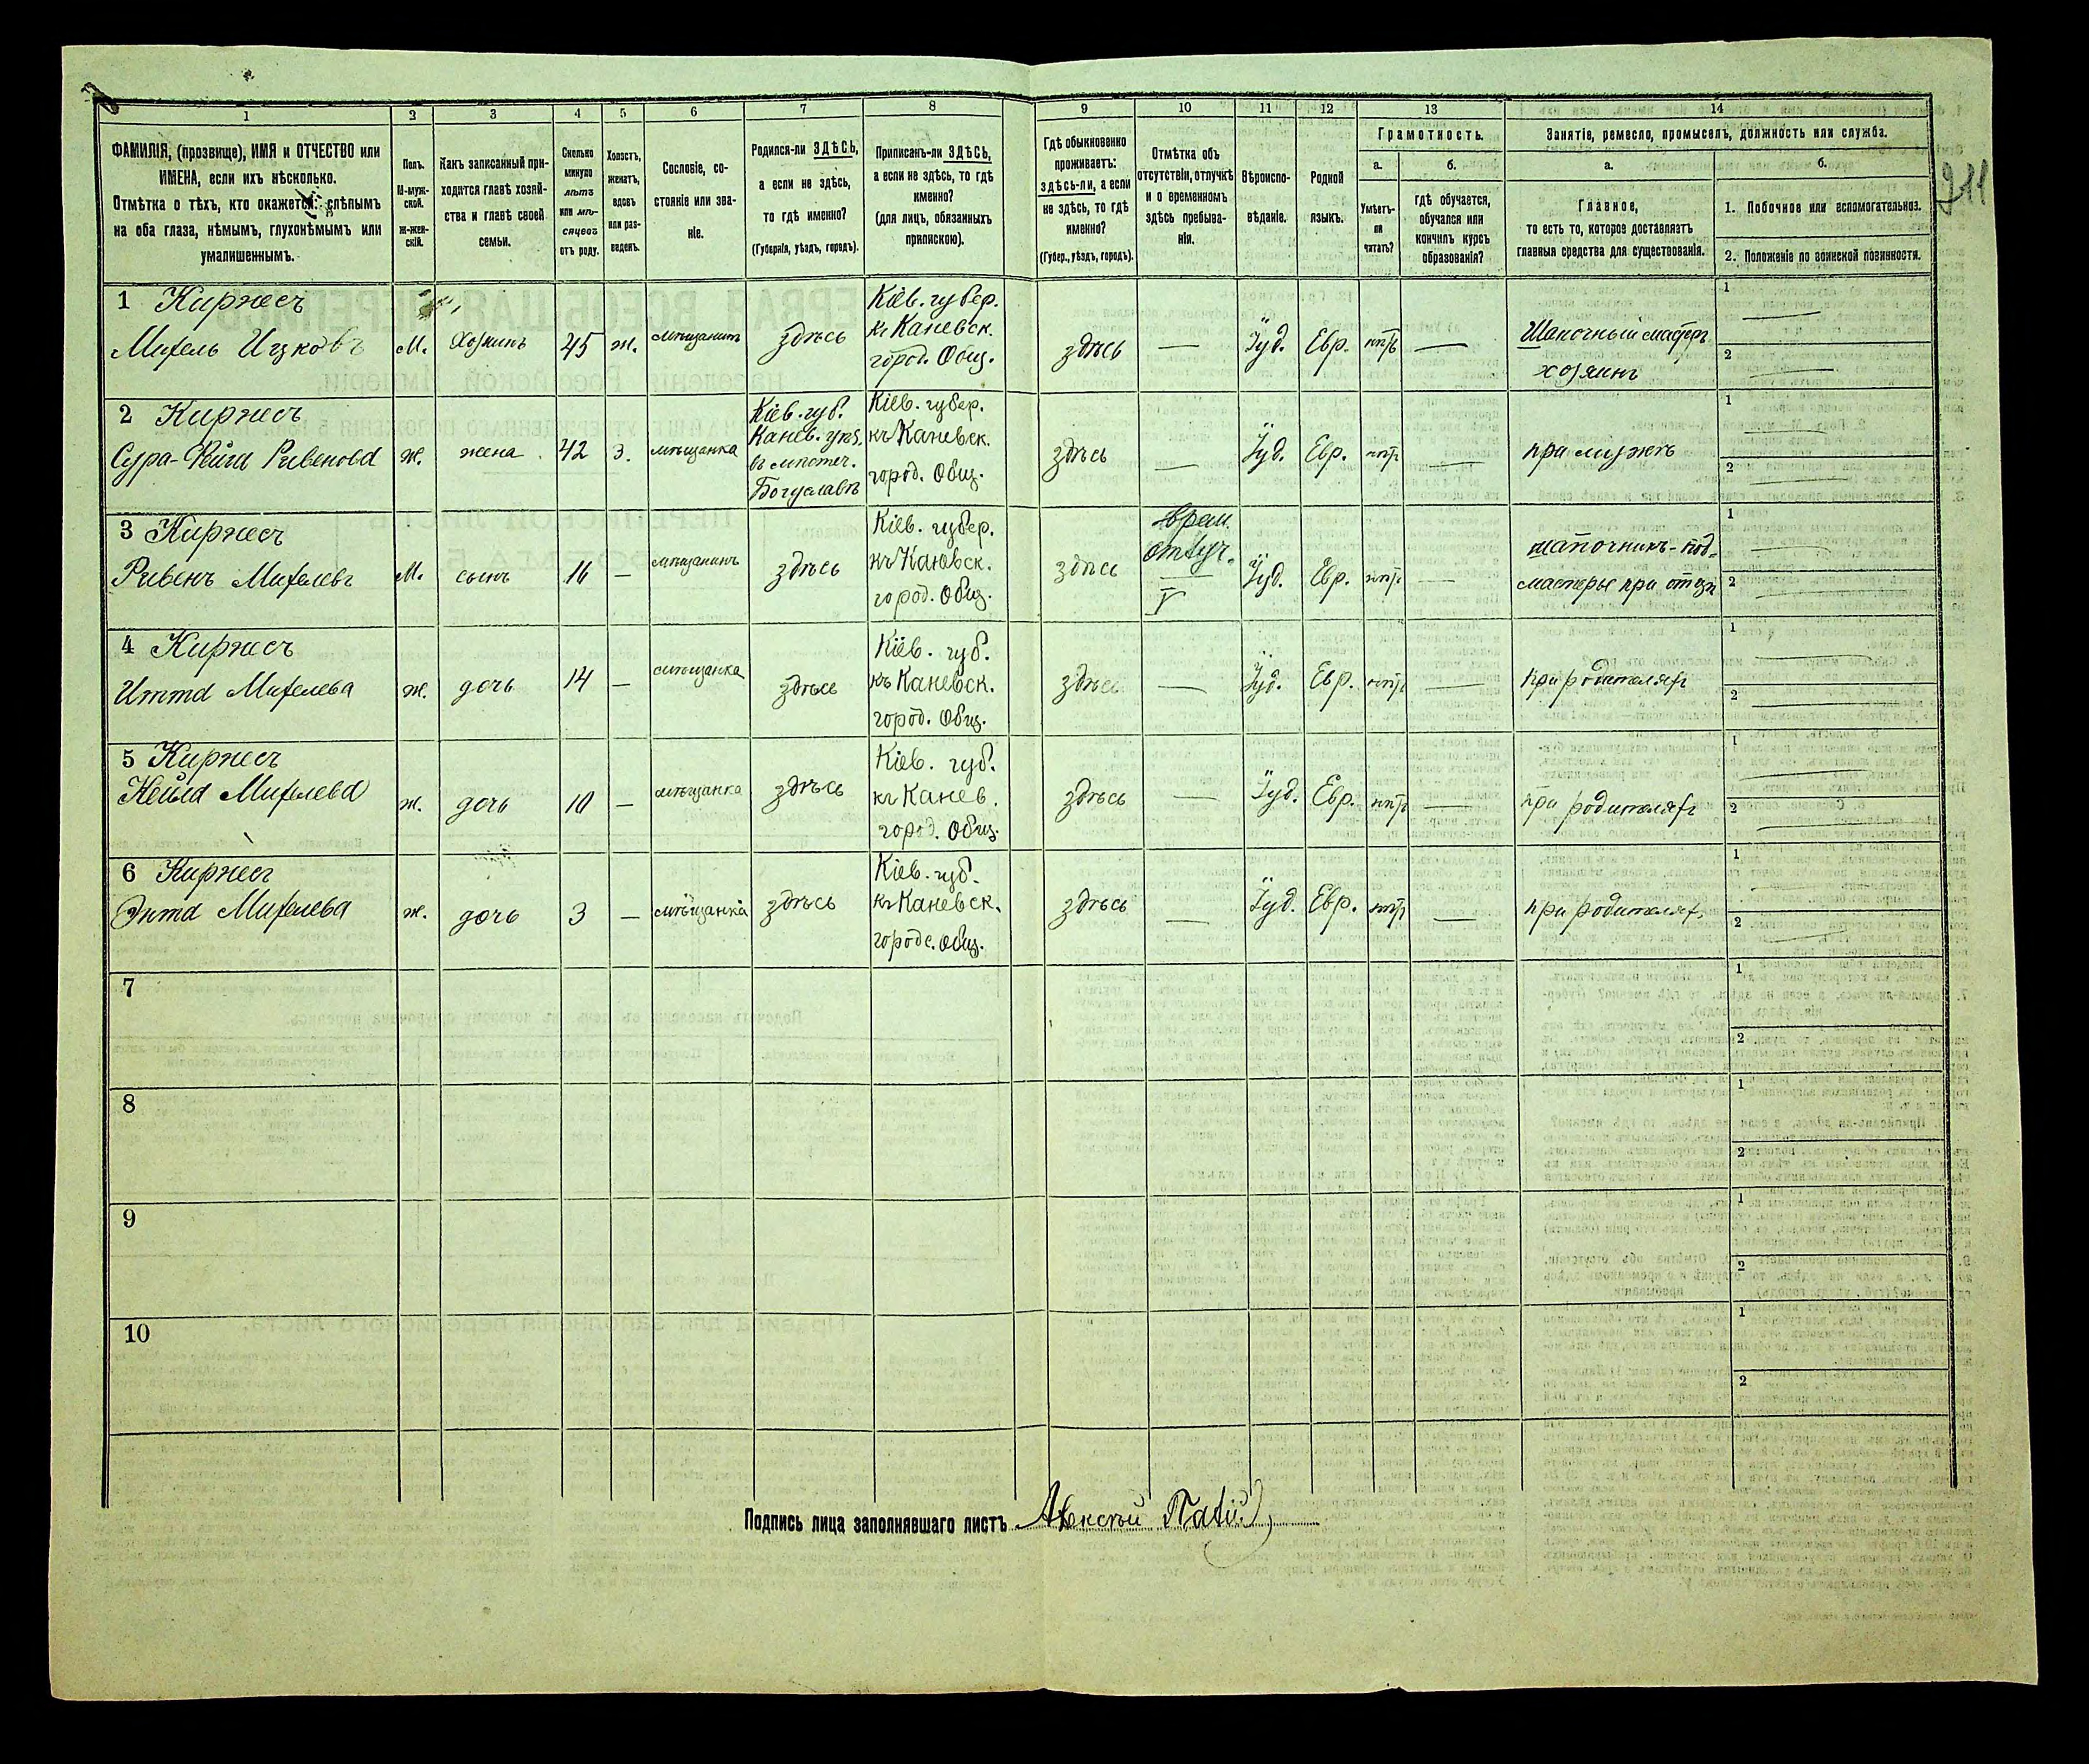 1
2
3
4
5
6
7
8
9
10
11
12
13
14
ФАМИЛІЯ, (прозвище), ИМЯ и ОТЧЕСТВО или
ИМЕНА, если ихъ нѣсколько.
Отмѣтка о тѣхъ, кто окажется: слѣпымъ
на оба глаза, нѣмымъ, глухонѣмымъ или
умалишеннымъ.
Полъ.
М-муж-
ской.
Ж-жен-
скій.
Какъ записанный при-
ходится главѣ хозяй-
ства и главѣ своей
семьи.
Сколько
минуло
лѣтъ
или мѣ-
сяцевъ
отъ роду.
Холостъ,
женатъ,
вдовъ
или раз-
веденъ.
Сословіе, со-
стояніе или зва-
ніе.
Родился-ли ЗДѢСЬ,
а если не здѣсь,
то гдѣ именно?
(Губернія, уѣздъ, городъ).
Приписанъ-ли ЗДѢСЬ,
а если не здѣсь, то гдѣ
именно?
(для лицъ, обязанныхъ
припискою).
Гдѣ обыкновенно
проживаетъ:
здѣсь-ли, а если
не здѣсь, то гдѣ
именно?
(Губер., уѣздъ, городъ).
Отмѣтка объ
отсутствіи, отлучкѣ
и о временномъ
здѣсь пребыва-
нія.
Вѣроиспо-
вѣданіе.
Родной
языкъ.
Грамотность.
а.
Умѣетъ-
ли
читать?
б.
гдѣ обучается,
обучался или
кончилъ курсъ
образованія?
Занятіе, ремесло, промыселъ, должность или служба.
а.
Главное,
то есть то, которое доставляетъ
главныя средства для существованія.
б.
1. Побочное или вспомогательноз.
2. Положеніе по воинской повинности.
211
1 Киржесъ
Михель Ицковъ
М.
Хозяинъ
45
ж.
мѣщанинъ
здѣсь
Кіев. губер.
къ Каневск.
город. Общ.
здѣсь
—
Іуд.
Евр.
—
Шапочный мастеръ
хозяинъ
1
2
2 Киржесъ
Сура-Фейга Рувенова
ж.
жена
42
З.
мѣщанка
Кіев. губ.
Канев. уѣз.
въ мѣстеч.
Богуславѣ
Кіев. губер.
къ Каневск.
город. Общ.
здѣсь
—
Іуд.
Евр.
—
при мужѣ
1
2
3 Киржесъ
Рувенъ Михелевъ
М.
сынъ
16
—
мѣщанинъ
здѣсь
Кіев. губер.
къ Каневск.
город. Общ.
здѣсь
врем.
отлуч.
Іуд.
Евр.
—
шапочникъ-под-
мастерье при отцѣ
1
2
4 Киржесъ
Итта Михелева
ж.
дочь
14
—
мѣщанка
здѣсь
Кіев. губ.
къ Каневск.
город. Общ.
здѣсь
—
Іуд.
Евр.
—
при родителяхъ
1
2
5 Киржесъ
Нейма Михелева
ж.
дочь
10
—
мѣщанка
здѣсь
Кіев. губ.
къ Канев.
город. Общ.
здѣсь
—
Іуд.
Евр.
—
при родителяхъ
1
2
6 Киржесъ
Энта Михелева
ж.
дочь
3
—
мѣщанка
здѣсь
Кіев. губ.
къ Каневск.
городс. общ.
здѣсь
—
Іуд.
Евр.
—
при родителях.
1
2
7
1
2
8
1
2
9
1
2
10
1
2
Подпись лица заполнявшаго листъ